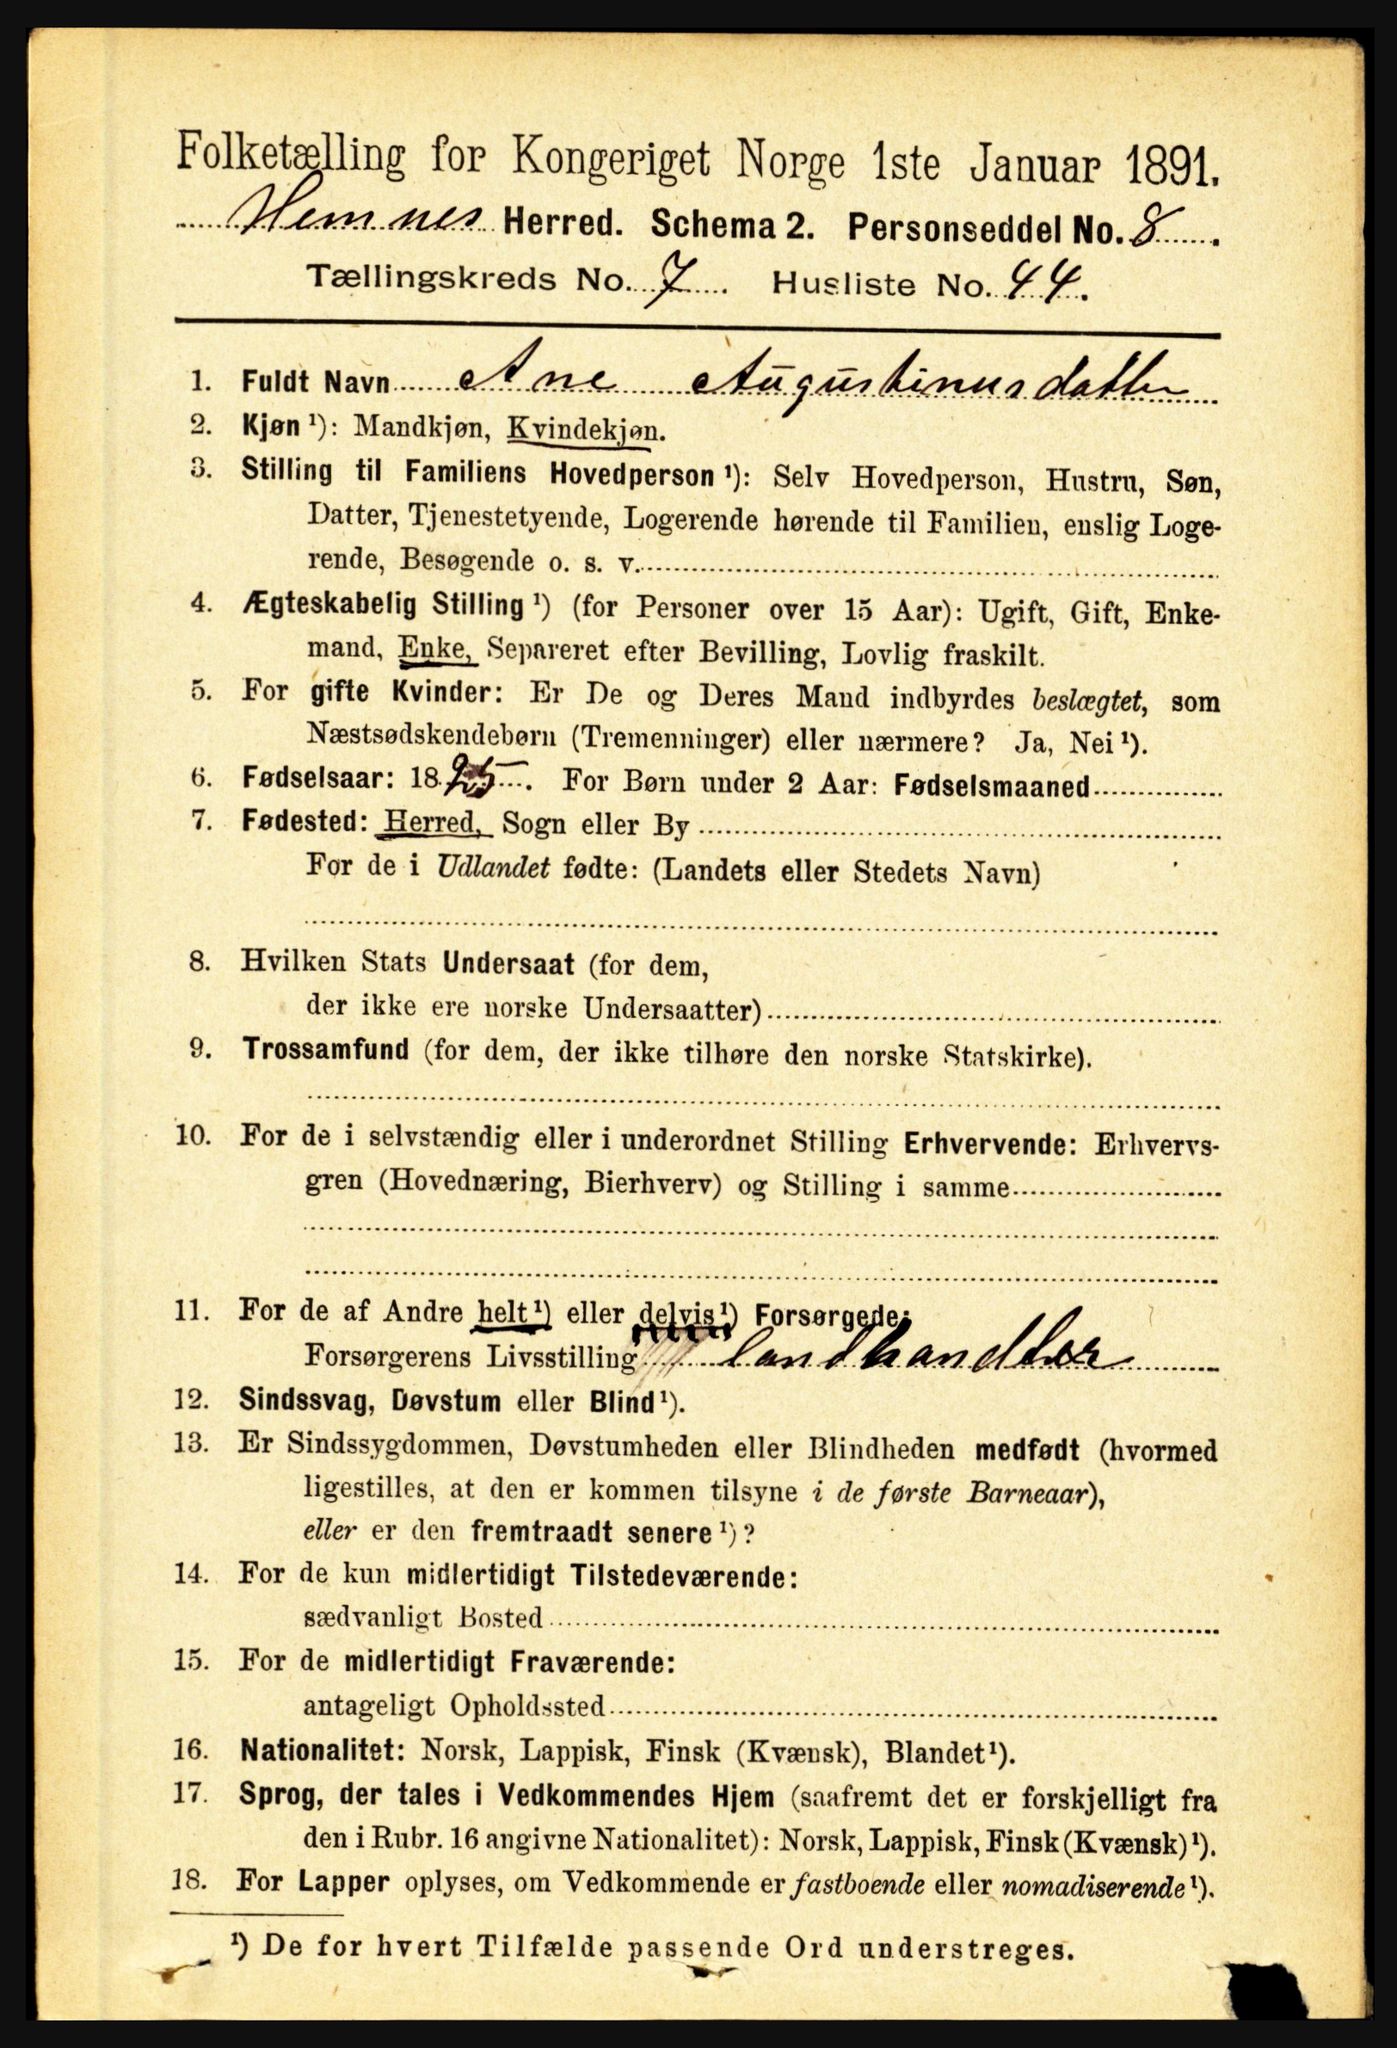 Folketælling for Kongeriget Norge 1ste Januar 1891.
Hemnes Herred. Schema 2. Personseddel No. 8.
Tællingskreds No. 7. Husliste No. 44.
1. Fuldt Navn Ane Augustinusdatter
2. Kjøn ¹): Mandkjøn, Kvindekjøn.
3. Stilling til Familiens Hovedperson ¹): Selv Hovedperson, Hustru, Søn,
Datter, Tjenestetyende, Logerende hørende til Familien, enslig Loge-
rende, Besøgende o. s. v.
4. Ægteskabelig Stilling ¹) (for Personer over 15 Aar): Ugift, Gift, Enke-
mand, Enke, Separeret efter Bevilling, Lovlig fraskilt.
5. For gifte Kvinder: Er De og Deres Mand indbyrdes beslægtet, som
Næstsødskendebørn (Tremenninger) eller nærmere? Ja, Nei ¹).
6. Fødselsaar: 1825. For Børn under 2 Aar: Fødselsmaaned
7. Fødested: Herred, Sogn eller By
For de i Udlandet fødte: (Landets eller Stedets Navn)
8. Hvilken Stats Undersaat (for dem,
der ikke ere norske Undersaatter)
9. Trossamfund (for dem, der ikke tilhøre den norske Statskirke).
10. For de i selvstændig eller i underordnet Stilling Erhvervende: Erhvervs-
gren (Hovednæring, Bierhverv) og Stilling i samme
11. For de af Andre helt ¹) eller delvis ¹) Forsørgede:
Forsørgerens Livsstilling landhandler
12. Sindssvag, Døvstum eller Blind ¹).
13. Er Sindssygdommen, Døvstumheden eller Blindheden medfødt (hvormed
ligestilles, at den er kommen tilsyne i de første Barneaar),
eller er den fremtraadt senere ¹)?
14. For de kun midlertidigt Tilstedeværende:
sædvanligt Bosted
15. For de midlertidigt Fraværende:
antageligt Opholdssted
16. Nationalitet: Norsk, Lappisk, Finsk (Kvænsk), Blandet ¹).
17. Sprog, der tales i Vedkommendes Hjem (saafremt det er forskjelligt fra
den i Rubr. 16 angivne Nationalitet): Norsk, Lappisk, Finsk (Kvænsk) ¹).
18. For Lapper oplyses, om Vedkommende er fastboende eller nomadiserende ¹).
¹) De for hvert Tilfælde passende Ord understreges.